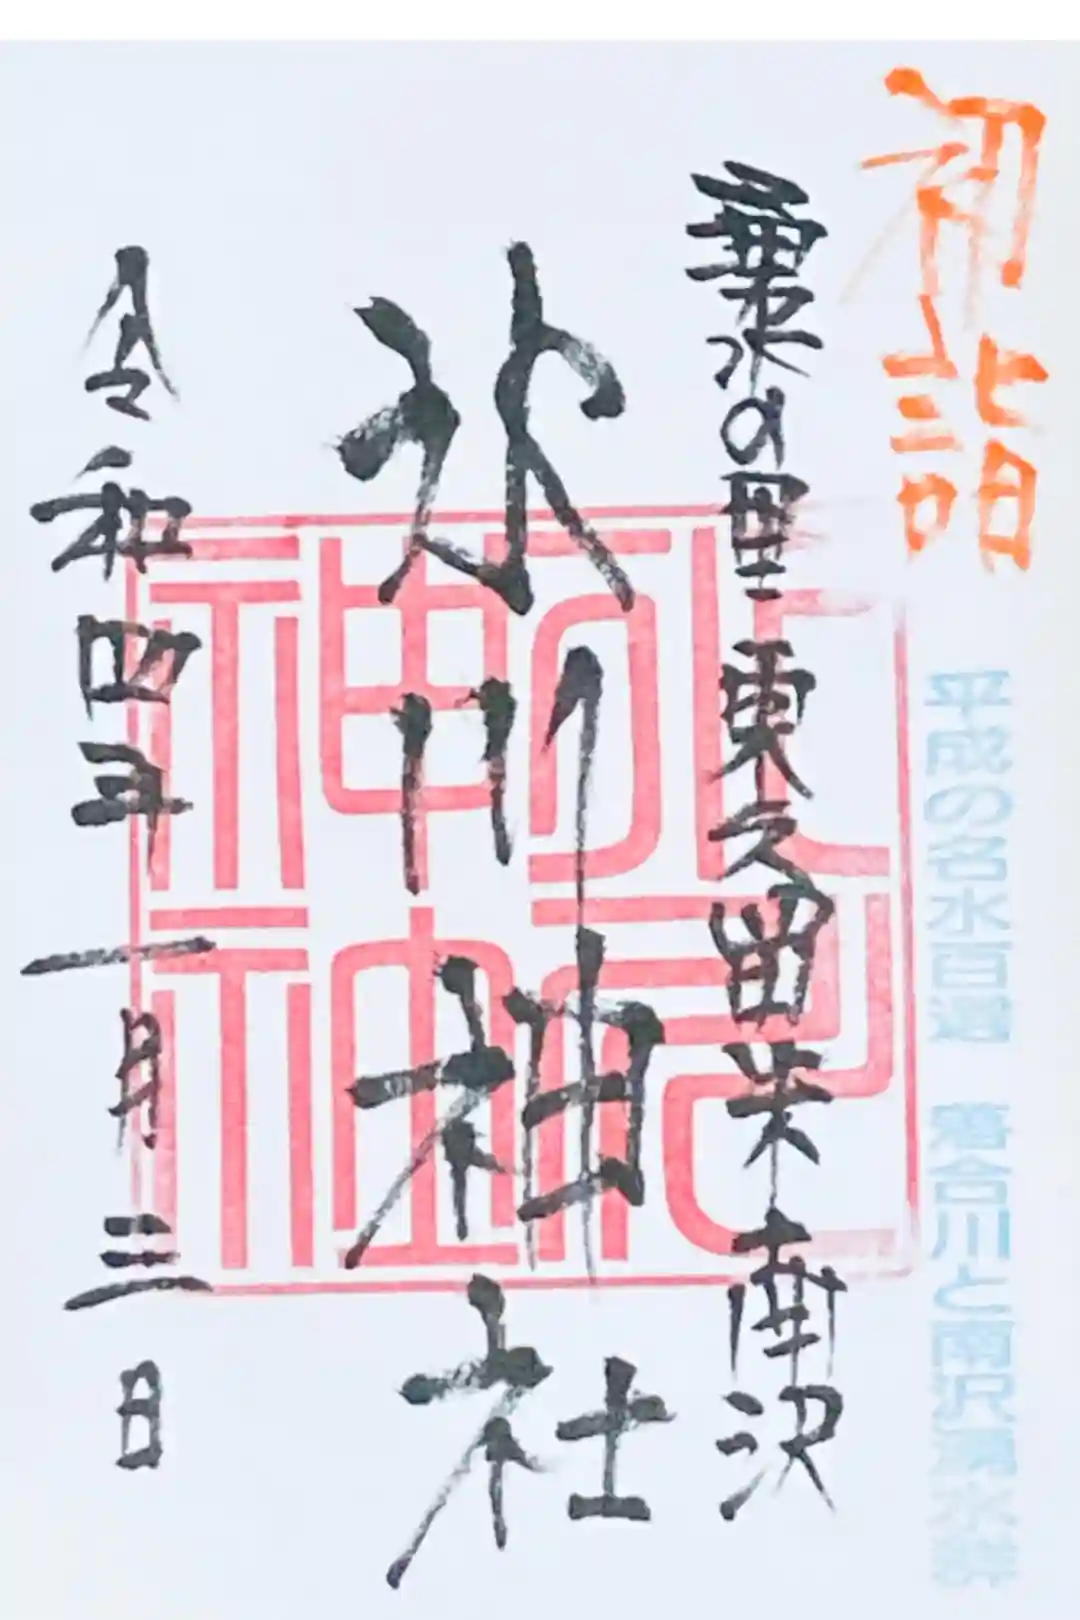 初詣
平成の名水百選 落合川と南沢湧水群
水の里 東久留米南沢
氷川神社
令和四年一月三日